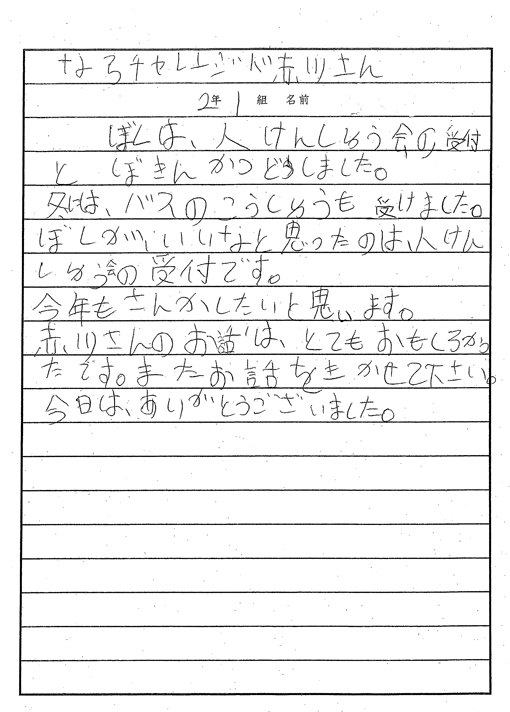 なろチャレンジド赤川さん
2年 1 組 名前
ぼくは、人けんしゅう会の受付
と ぼきんかつどうしました。
冬は、バスのこうしゅうも受けました。
ぼくが、いいなと思ったのは、人けん
しゅう会の受付です。
今年もさんかしたいと思います。
赤川さんのお話は、とてもおもしろかっ
たです。またお話をきかせて下さい。
今日は、ありがとうございました。